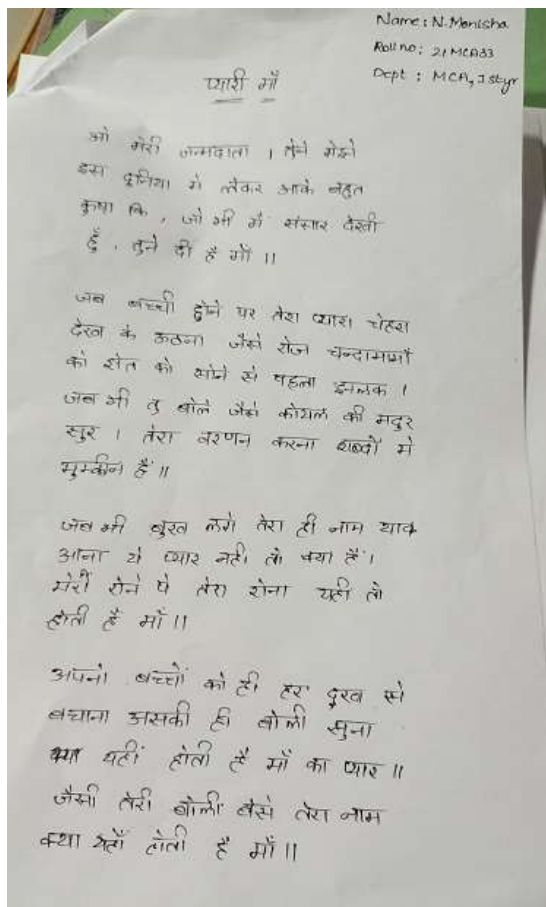 Name: N. Monisha
Roll no: 21MCA33
Dept : MCA, I styr
प्यारी माँ
ओ मेरी जन्मदाता । तेने मेझे
इस दूनिया मे लेकर आके बहुत
कृपा कि , जो भी मैं संसार देखी
हुँ , तुने दी है माँ ॥
जब बच्ची होने पर तेरा प्यारा चेहरा
देख के ऊठना जैसे रोज चन्दामामाँ
को रात को सोने से पहला झलक ।
जब भी तु बोले जैसे कोयल की मदुर
सुर । तेरा वरणन करना शब्दों मे
मुम्कीन हैं ॥
जब भी बुख लगे तेरा ही नाम याद
आना ये प्यार नही तो क्या हैं ।
मेरी रोने पे तेरा रोना यही तो
होती हैं माँ ॥
अपने बच्चों को ही हर दुख से
बचाना असकी ही बोली सुना
क्या यहीं होती है माँ का प्यार ॥
जैसी तेरी बोली बैसे तेरा नाम
क्या यहाँ होती है माँ ॥